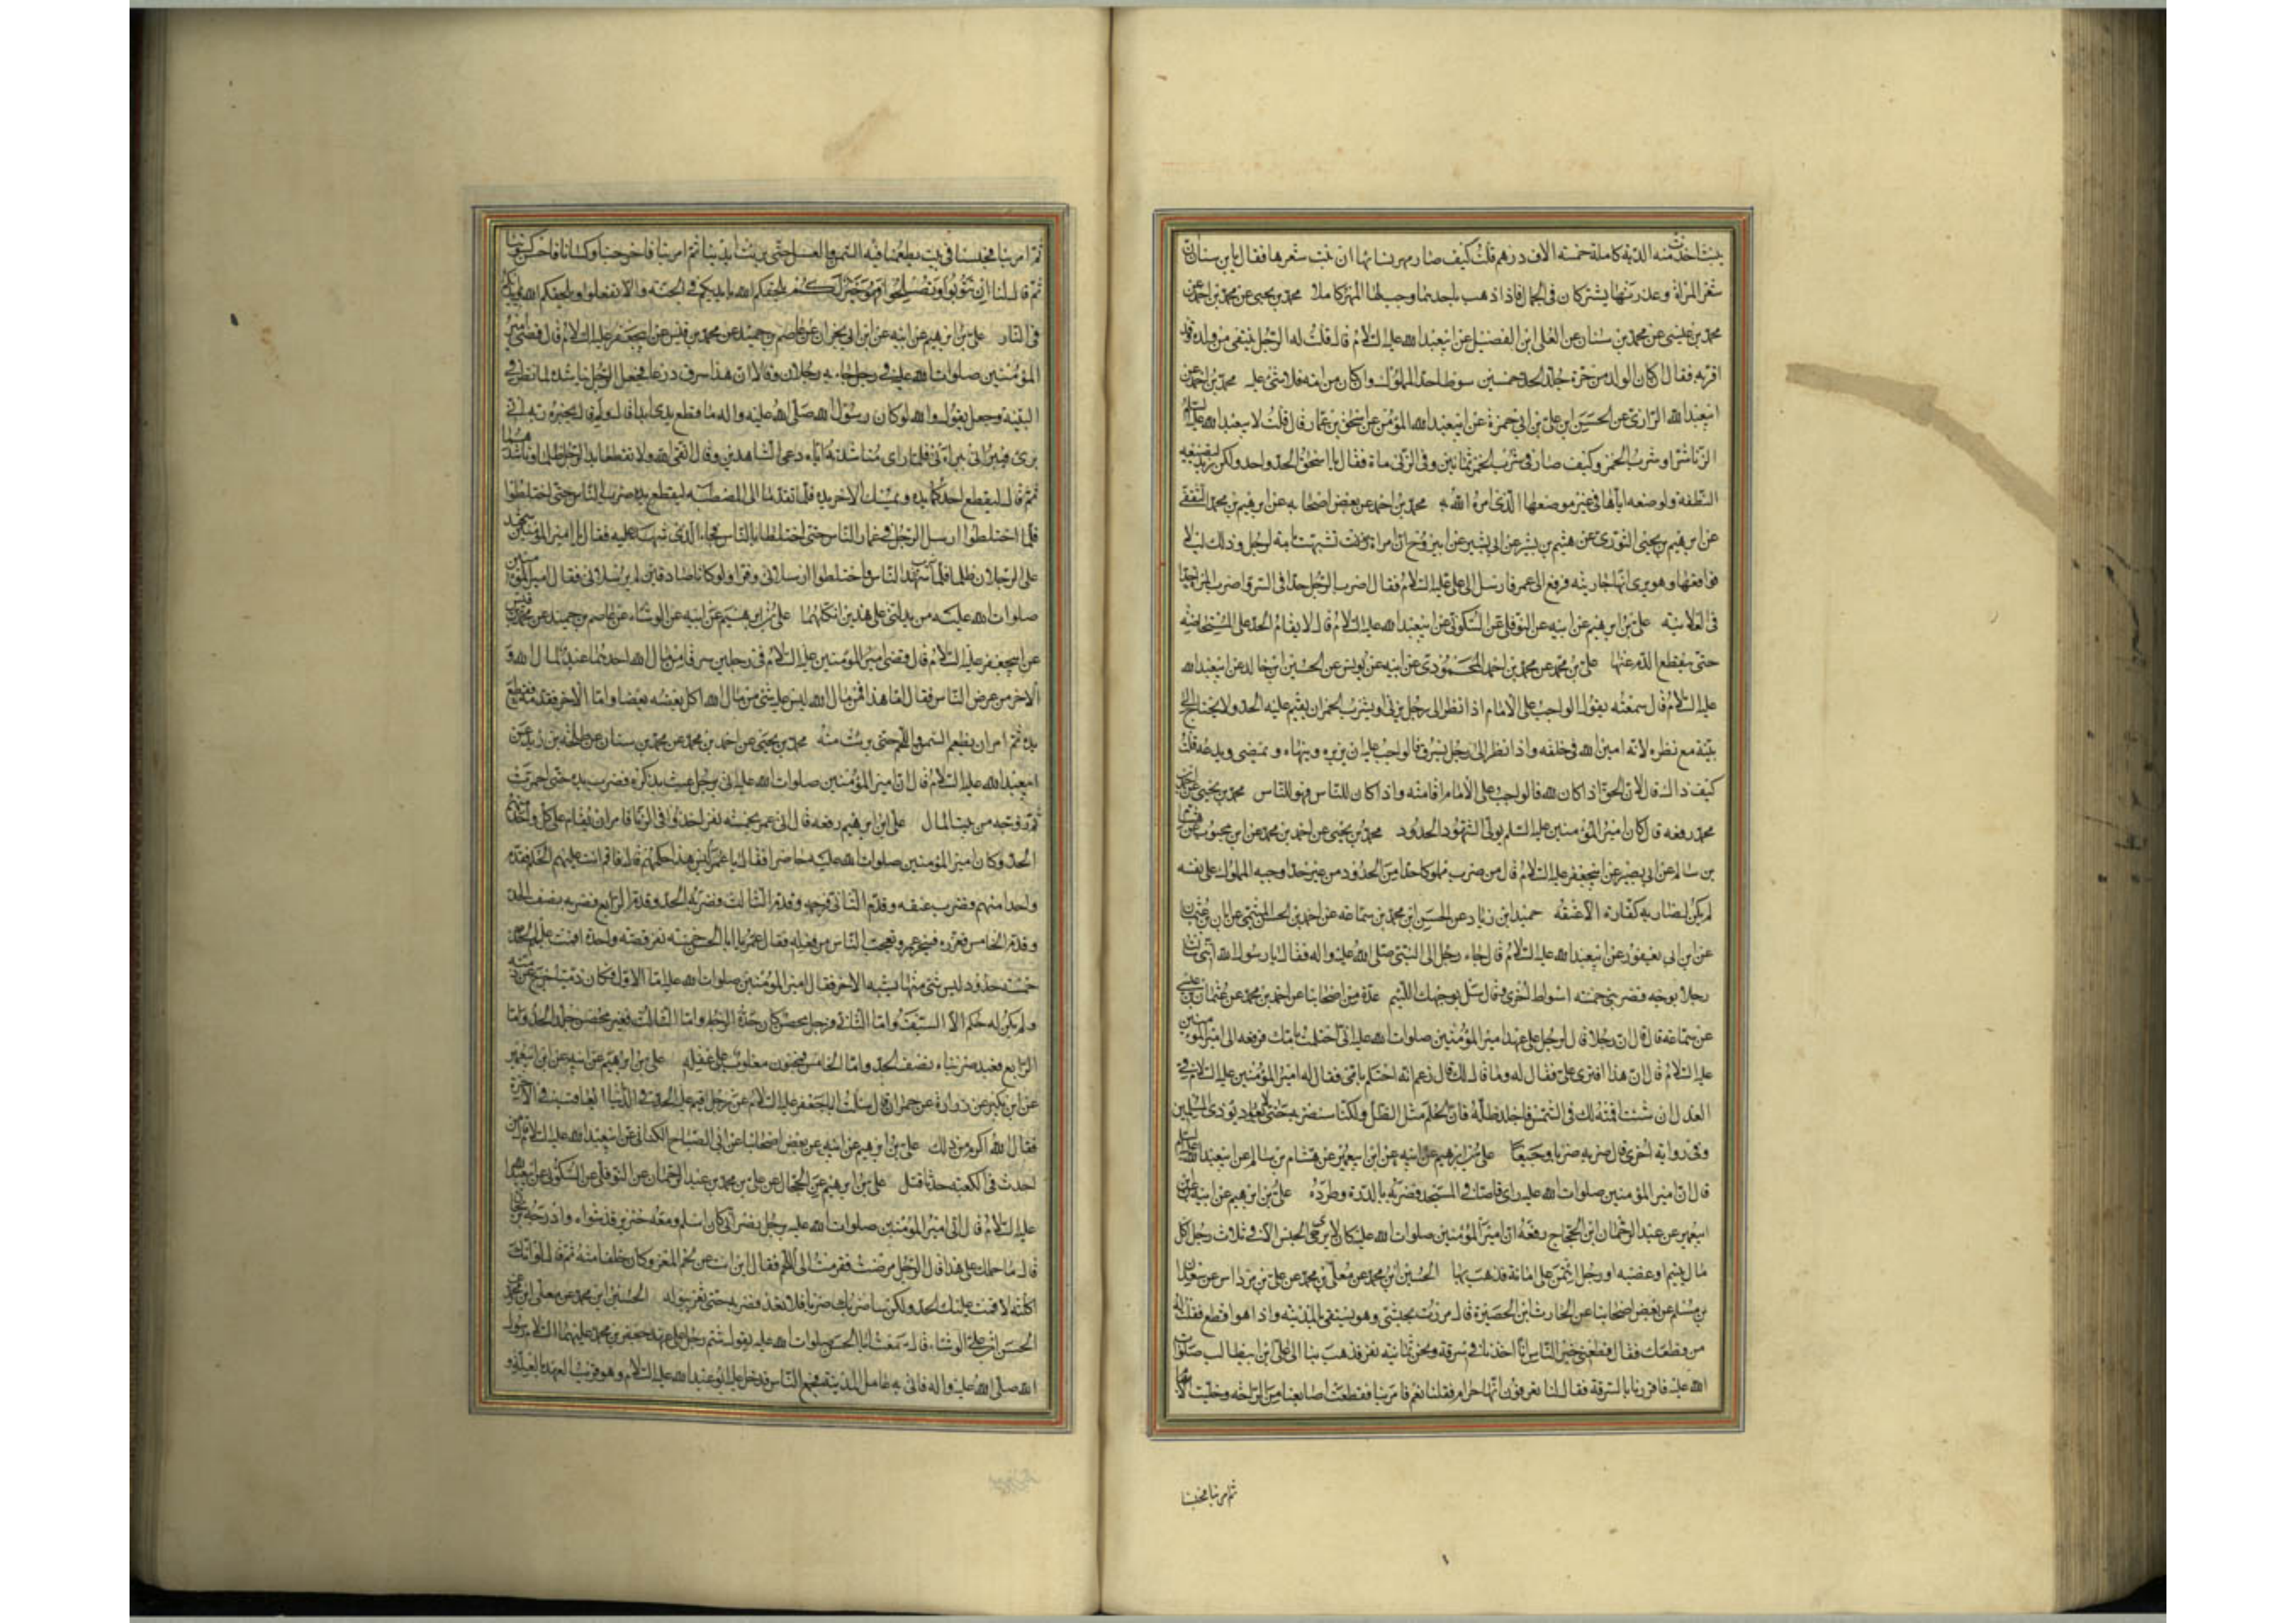 ينبت اخذت منه الدية كاملة خمسة الاف درهم قلت كيف صار مهر نسائها ان نبت شعرها فقال يابن سنان ان
شعر المراة وعذرتها يشتركان فى الجمال فاذا ذهب باحدهما وجب لها المهر كاملا محمد بن يحيى عن محمد بن احمد عن
محمد بن عيسى عن محمد بن سنان عن العلى ابن الفضيل عن ابيعبد الله عليه السلام قال قلت له الرجل ينتفى من ولده وقد
اقر به فقال ان كان الولد من حرة جلد الحد خمسين سوطا حد المملوك وان كان من امه فلا شئ عليه محمد بن احمد عن
ابيعبد الله الرازى عن الحسن بن على بن ابى حمزة عن ابيعبد الله المؤمن عن اسحق بن عمار قال قلت لابيعبد الله عليه السلام
الزنا شر او شرب الخمر وكيف صار فى شرب الخمر ثمانين وفى الزنى ماة فقال يا اسحق الحد واحد ولكن زيد لتضييعه
النطفة ولوضعه اياها فى غير موضعها الذى امره الله به محمد بن احمد عن بعض اصحابه عن ابرهيم بن محمد الثقفى
عن ابرهيم بن يحيى الثورى عن هشيم بن بشير عن ابى بشير عن ابى روح ان امراة تشبهت بامة لرجل وذلك ليلا
فواقعها وهو يرى انها جاريته فرفع الى عمر فارسل الى على عليه السلام فقال اضرب الرجل حدا فى السر واضرب المراة حدا
فى العلانية على بن ابرهيم عن ابيه عن النوفلى عن السكونى عن ابيعبد الله عليه السلام قال لا يقام الحد على المستحاضة
حتى ينقطع الدم عنها على بن محمد عن محمد بن احمد المحمودى عن ابيه عن يونس عن الحسين ابن خالد عن ابيعبد الله
عليه السلام قال سمعته يقول الواجب على الامام اذا نظر الى رجل يزنى او يشرب الخمر ان يقيم عليه الحد ولا يحتاج الى
بينة مع نظره لانه امين الله فى خلقه واذا نظر الى رجل يسرق فالواجب عليه ان يزبره وينهاه ويمضى ويدعه قلت
كيف ذاك قال لان الحق اذا كان لله فالواجب على الامام اقامته واذا كان للناس فهو للناس محمد بن يحيى عن احمد بن
محمد رفعه قال كان امير المؤمنين عليه السلم يولى الشهود الحدود محمد بن يحيى عن احمد بن محمد عن ابن محبوب عن هشام
بن سالم عن ابى بصير عن ابيجعفر عليه السلام قال من ضرب مملوكا حدا من الحدود من غير حد اوجبه المملوك على نفسه
لم يكن لضاربه كفارة الا عتقه حميد ابن زياد عن الحسن ابن محمد بن سماعة عن احمد بن الحسن الميثمى عن ابان بن عثمان
عن ابن ابى يعفور عن ابيعبد الله عليه السلام قال جاء رجل الى النبى صلى الله عليه واله فقال يا رسول الله انى سالت
رجلا بوجه الله فضربنى خمسة اسواط اخرى وقال سل بوجهك اللئيم عدة من اصحابنا عن احمد بن محمد عن عثمان بن عيسى
عن سماعة قال قال ان رجلا قال لرجل على عهد امير المؤمنين صلوات الله عليه انى احتلمت بامك فرفعه الى امير المؤمنين
عليه السلام قال ان هذا افترى على فقال له وما قال لك قال زعم انه احتلم بامى فقال له امير المؤمنين عليه السلام فى
العدل ان شئت اقمته لك فى الشمس فاجلد ظله فان الحلم مثل الظل ولكنا سنضربه حتى لا يعود يوذى المسلمين
وفى رواية اخرى قال ضربه ضربا وجيعا على بن ابرهيم عن ابيه عن ابن ابيعمير عن هشام بن سالم عن ابيعبد الله عليه السلام
قال ان امير المؤمنين صلوات الله عليه راى قاصا فى المسجد فضربه بالدرة وطرده على بن ابرهيم عن ابيه عن ابن
ابيعمير عن عبد الرحمان ابن الحجاج رفعه ان امير المؤمنين صلوات الله عليه كان لا يرى الحبس الا فى ثلاث رجل اكل
مال يتيم او غصبه او رجل اؤتمن على امانة فذهب بها الحسين ابن محمد عن معلى بن محمد عن على بن مرداس عن سعدان
بن مسلم عن بعض اصحابنا عن الحارث ابن الحصيرة قال مررت بحبشى وهو يستقى بالمدينة واذا هو اقطع فقلت له
من قطعك فقال قطعنى خير الناس انا اخذنا فى سرقة ونحن ثمانية نفر فذهب بنا الى على ابن ابيطالب صلوات
الله عليه فاقررنا بالسرقة فقال لنا تعرفون انها حرام فقلنا نعم فامر بنا فقطعت اصابعنا من الراحة وخليت الابهام
ثم امر بنا فحبسنا
ثم امر بنا فحبسنا فى بيت يطعمنا فيه السمن والعسل حتى برئت ايدينا ثم امر بنا فاخرجنا وكسانا فاحسن كسوتنا
ثم قال لنا ان تتوبوا وتصلحوا فهو خير لكم يلحقكم الله بايديكم فى الجنة والا تفعلوا يلحقكم الله بايديكم
فى النار على بن ابرهيم عن ابيه عن ابن ابى نجران عن عاصم بن حميد عن محمد بن قيس عن ابيجعفر عليه السلام قال قضى امير
المؤمنين صلوات الله عليه فى رجل جاء به رجلان وقالا ان هذا سرق درعا فجعل الرجل يناشده لما نظر فى
البينة وجعل يقول والله لو كان رسول الله صلى الله عليه واله ما قطع يدى ابدا قال ولم قال يخبره ربه انى
برئ فيبرانى ببراءتى فلما راى مناشدته اياه دعى الشاهدين وقال اتقيا الله ولا تقطعا يد الرجل ظلما وناشدهما
ثم قال ليقطع احدكما يده ويمسك الاخر يده فلما تقدما الى المصطبة ليقطع يده ضرب الناس حتى اختلطوا
فلما اختلطوا ارسلا الرجل فى غمار الناس حتى اختلطا بالناس فجاء الذى شهدا عليه فقال يا امير المؤمنين شهد
على الرجلان ظلما فلما ضرب الناس واختلطوا ارسلانى وفرا ولو كانا صادقين لم يرسلانى فقال امير المؤمنين
صلوات الله عليه من يدلنى على هذين انكلهما على بن ابرهيم عن ابيه عن الوشاء عن عاصم بن حميد عن محمد بن قيس
عن ابيجعفر عليه السلام قال قضى امير المؤمنين عليه السلام فى رجلين سرقا من مال الله احدهما عبد لمال الله و
الاخر من عرض الناس فقال اما هذا فمن مال الله ليس عليه شئ من مال الله اكل بعضه بعضا واما الاخر فقدمه فقطع
يده ثم امر ان يطعم السمن واللحم حتى برئت منه محمد بن يحيى عن احمد بن محمد عن محمد بن سنان عن طلحة بن زيد عن
ابيعبد الله عليه السلام قال ان امير المؤمنين صلوات الله عليه اتى برجل عبث بذكره فضرب يده حتى احمرت
ثم زوجه من بيت المال على ابن ابرهيم رفعه قال اتى عمر بخمسة نفر اخذوا فى الزنا فامر ان يقام على كل واحد منهم
الحد وكان امير المؤمنين صلوات الله عليه حاضرا فقال يا عمر ليس هذا حكمهم قال فاقم انت عليهم الحكم فقدم
واحدا منهم فضرب عنقه وقدم الثانى فرجمه وقدم الثالث فضربه الحد وقدم الرابع فضربه نصف الحد
وقدم الخامس فعزره فتحير عمر وتعجب الناس من فعله فقال عمر يا ابا الحسن خمسة نفر فى قصة واحدة اقمت عليهم
خمسة حدود ليس شئ منها يشبه الاخر فقال امير المؤمنين صلوات الله عليه اما الاول فكان ذميا خرج عن ذمته
ولم يكن له حكم الا السيف واما الثانى فرجل محصن كان حده الرجم واما الثالث فغير محصن جلد الحد واما
الرابع فعبد ضربناه نصف الحد واما الخامس فمجنون مغلوب على عقله على بن ابرهيم عن ابيه عن ابن ابيعمير
عن ابن بكير عن زرارة عن حمران قال سالت اباجعفر عليه السلام عن رجل اقيم عليه الحد فى الدنيا ايعاقب فى الاخرة
فقال الله اكرم من ذلك على بن ابرهيم عن ابيه عن بعض اصحابنا عن ابى الصباح الكنانى عن ابيعبد الله عليه السلام قال من
احدث فى الكعبة حدثا قتل على بن ابرهيم عن على بن محمد بن عبد الرحمان عن النوفلى عن السكونى عن ابيعبد الله
عليه السلام قال اتى امير المؤمنين صلوات الله عليه برجل نصرانى كان اسلم ومعه خنزير قد شواه وادرجه بريحان
قال ما حملك على هذا قال الرجل مرضت فقرمت الى اللحم فقال اين انت عن لحم المعز وكان خلفا منه ثم قال لو انك
اكلته لاقمت عليك الحد ولكن ساضربك ضربا فلا تعد فضربه حتى شغر ببوله الحسين ابن محمد عن معلى ابن محمد عن
الحسن ابن على الوشاء قال سمعت ابا الحسن صلوات الله عليه يقول شتم رجل على عهد جعفر بن محمد عليهما السلام رسول
الله صلى الله عليه واله فاتى به عامل المدينة فجمع الناس فدخل عليه ابو عبد الله عليه السلام وهو قريب العهد بالعلة و